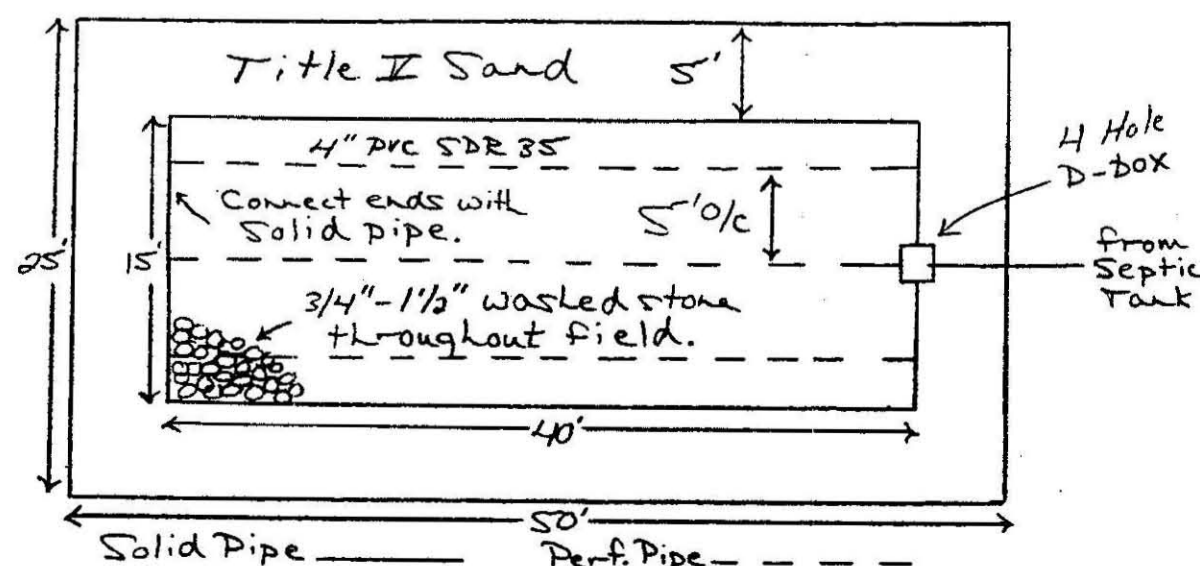 Title V Sand
5'
4" PVC SDR 35
4 Hole
D-Box
Connect ends with
Solid pipe.
5' O/C
25'
15'
from
Septic
Tank
3/4"-1 1/2" washed stone
throughout field.
40'
50'
Solid Pipe
Perf. Pipe